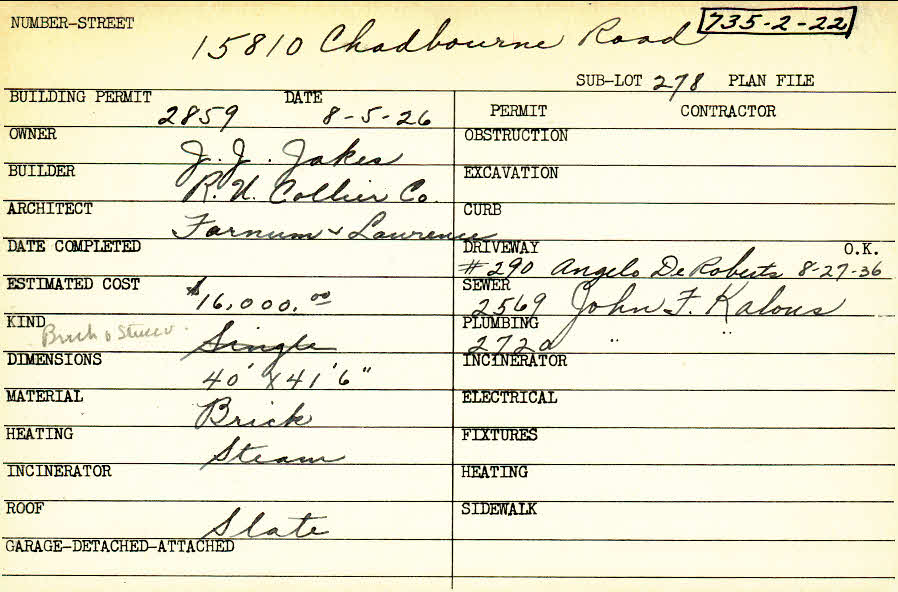 NUMBER-STREET 15810 Chadbourne Road 735-2-22
SUB-LOT 278 PLAN FILE
BUILDING PERMIT 2859 DATE 8-5-26
PERMIT CONTRACTOR
OWNER J. J. Jakes
OBSTRUCTION
BUILDER R. U. Collier Co.
EXCAVATION
ARCHITECT Farnum & Lawrence
CURB
DATE COMPLETED
DRIVEWAY #290 Angelo De Roberts 8-27-36 O.K.
ESTIMATED COST $16,000.00
SEWER 2569 John F. Kalous
KIND Brick & Stucco Single
PLUMBING 2720 " "
DIMENSIONS 40' X 41'6"
INCINERATOR
MATERIAL Brick
ELECTRICAL
HEATING Steam
FIXTURES
INCINERATOR
HEATING
ROOF Slate
SIDEWALK
GARAGE-DETACHED-ATTACHED